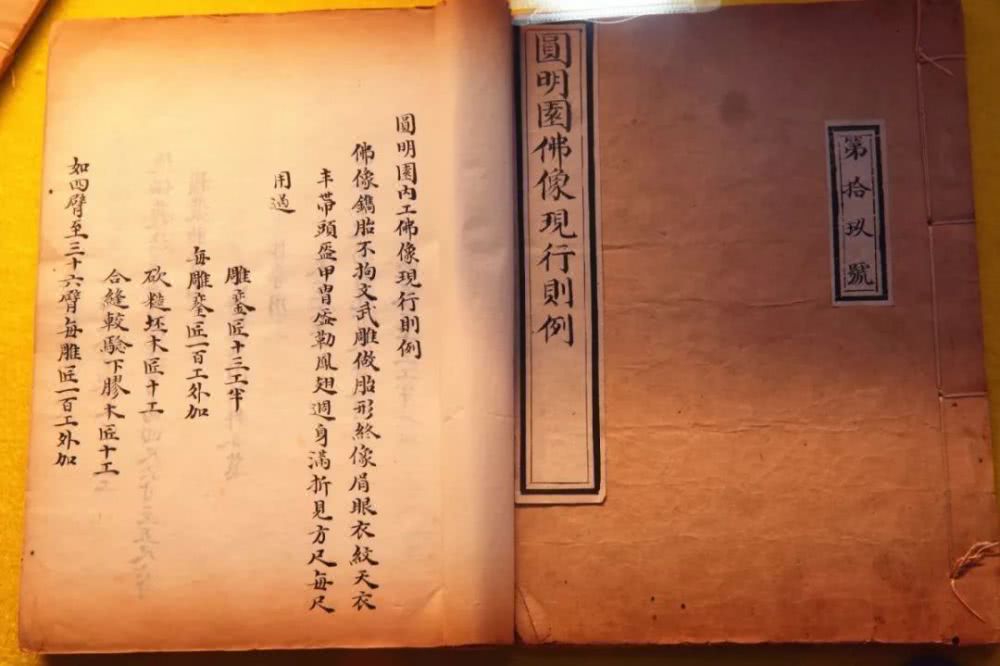 第拾玖號
圓明園佛像現行則例
圓明園內工佛像現行則例
佛像鐫胎不拘文武雕做胎形終像眉眼衣紋天衣
丰帶頭盔甲冑盔勒鳳翅週身滿折見方尺每尺
用過
雕鑾匠十三工半
每雕鑾匠一百工外加
砍糙坯木匠十工
合縫較驗下膠木匠十工
如四臂至三十六臂每雕匠一百工外加